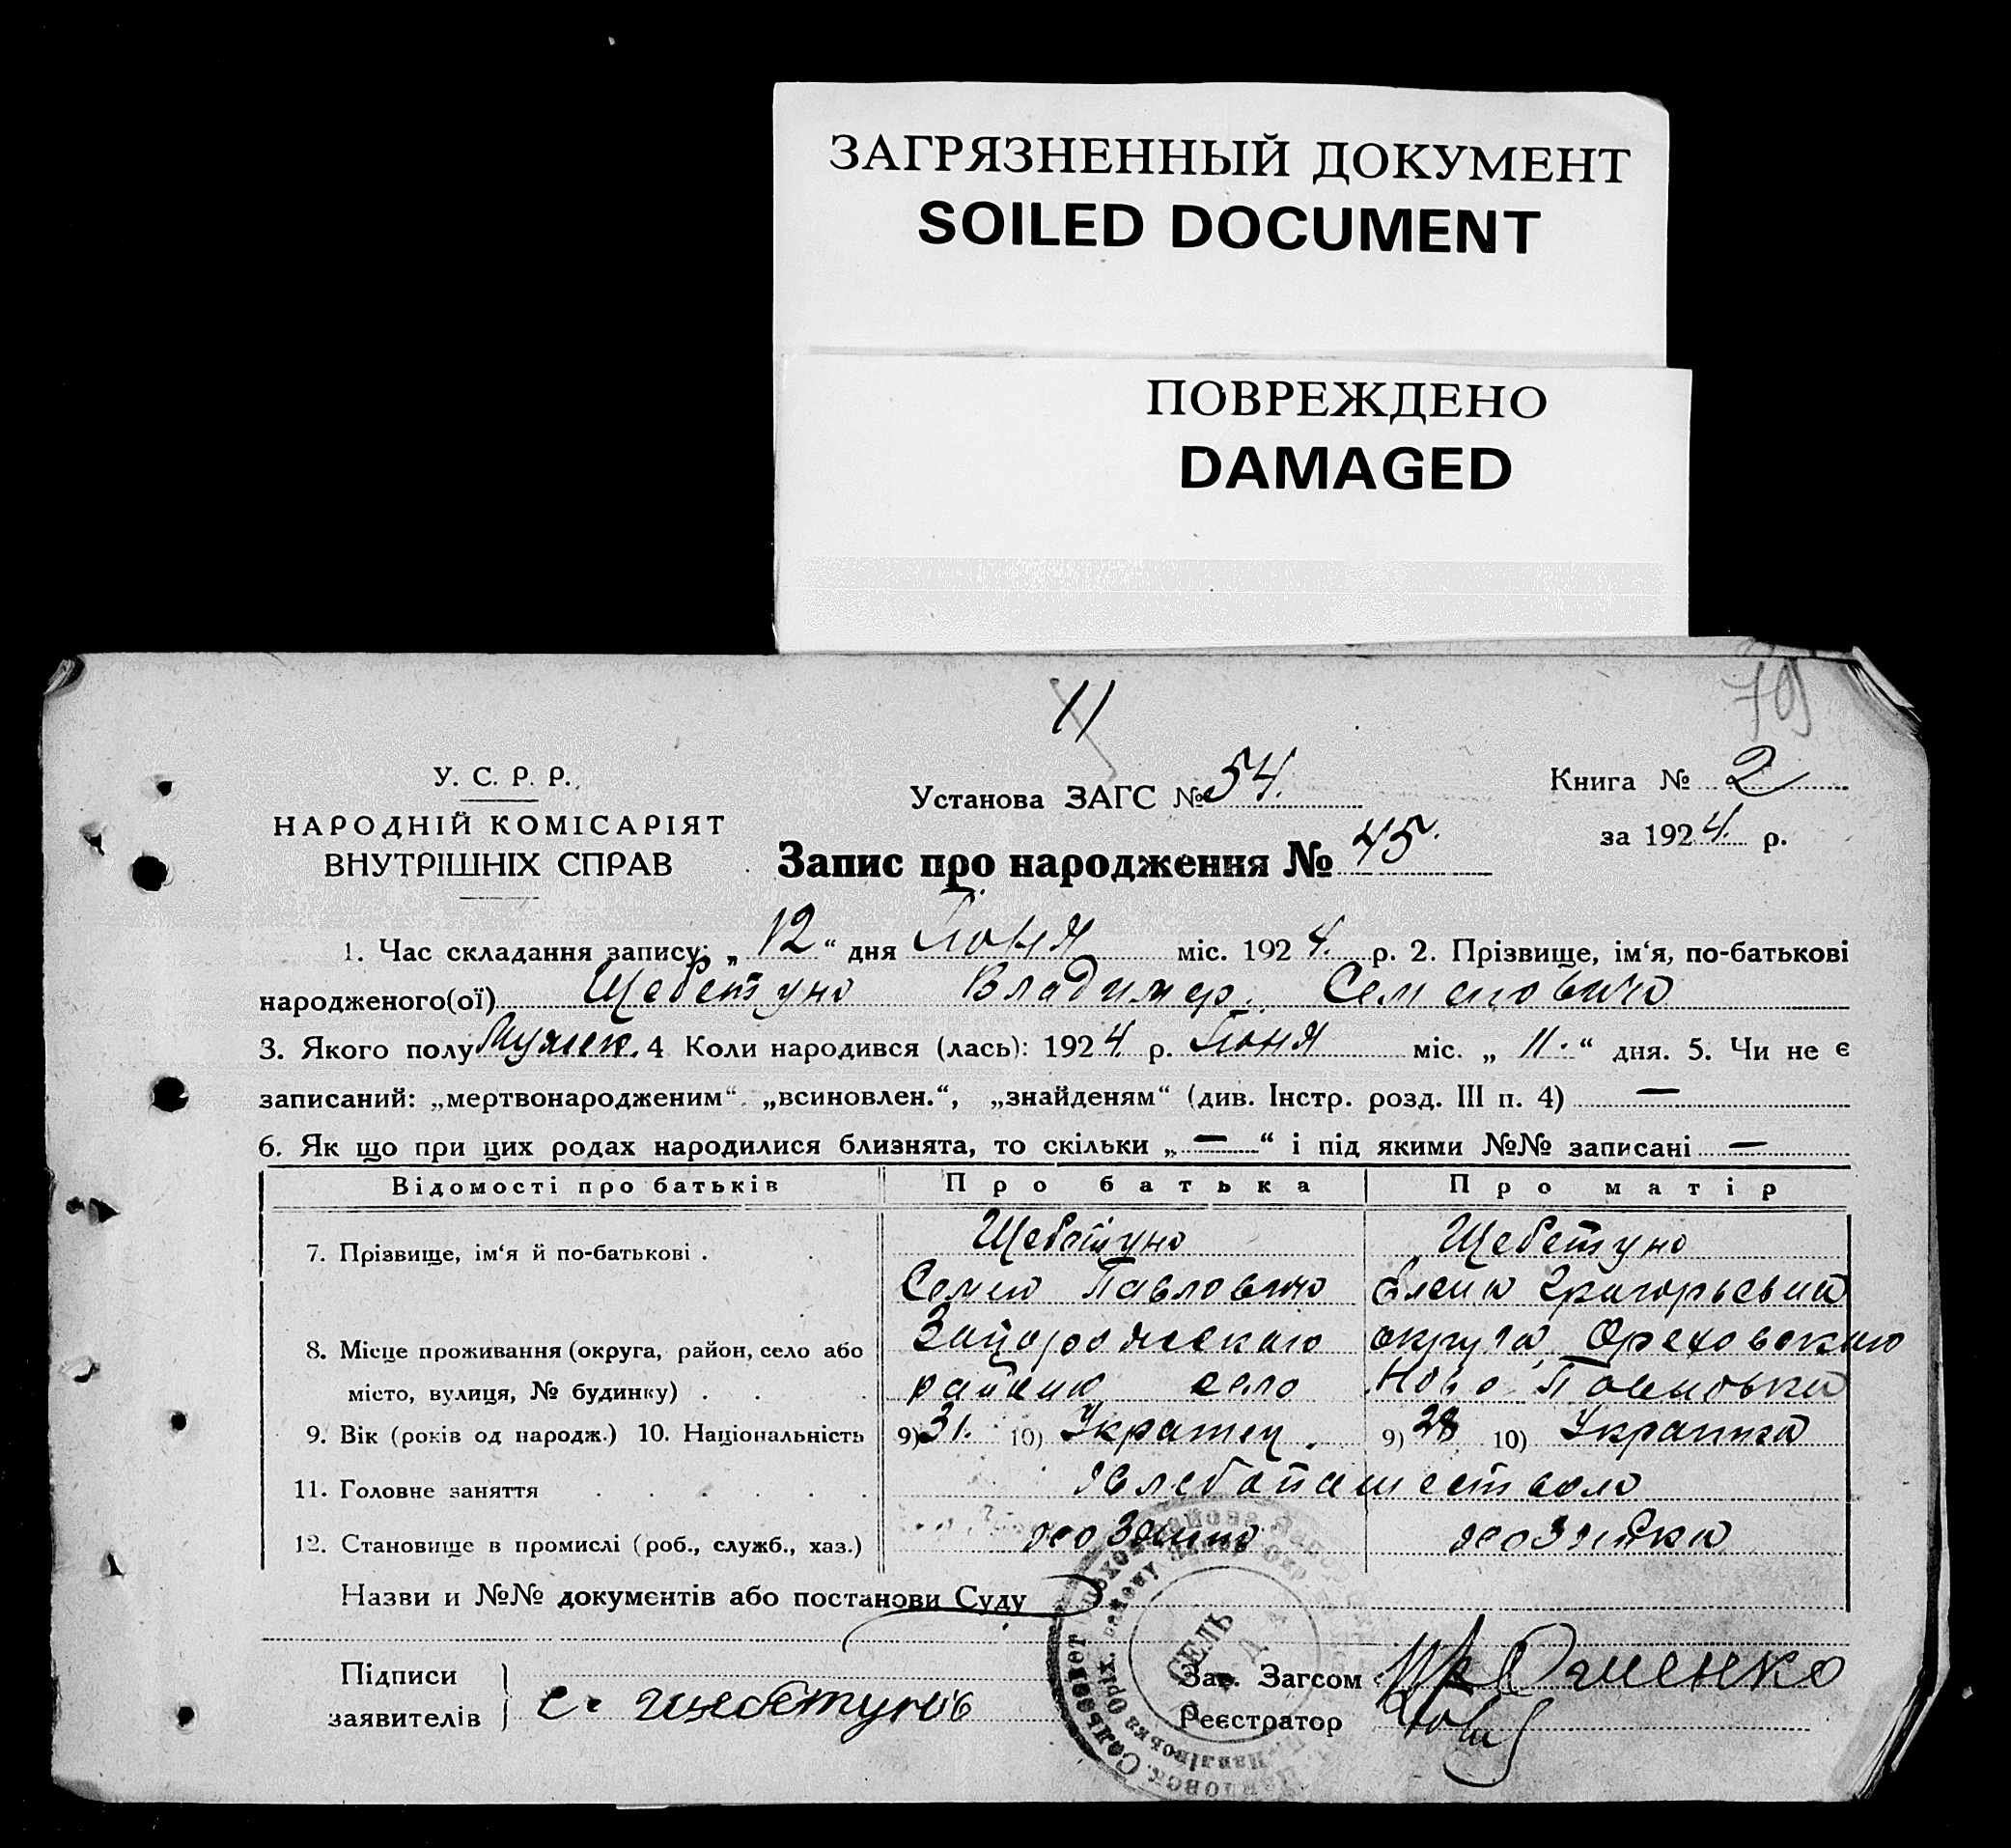 ЗАГРЯЗНЕННЫЙ ДОКУМЕНТ
SOILED DOCUMENT
ПОВРЕЖДЕНО
DAMAGED
11
79
У. С. Р. Р.
НАРОДНІЙ КОМІСАРІЯТ
ВНУТРІШНІХ СПРАВ
Установа ЗАГС № 54.
Книга № 2
за 1924. р.
Запис про народження № 45.
1. Час складання запису: „12“ дня Июня міс. 1924. р. 2. Прізвище, ім‘я, по-батькові
народженого(ої) Щебетун Владимир. Семенович
3. Якого полу Мужск. 4 Коли народився (лась): 1924 р. Июня міс. „11.“ дня. 5. Чи не є
записаний: „мертвонародженим“. „всиновлен.“, „знайденям“ (див. Інстр. розд. III п. 4) —
6. Як що при цих родах народилися близнята, то скільки „—“ і під якими №№ записані —
Відомості про батьків Про батька Про матір
7. Прізвище, ім‘я й по-батькові . Щебетун Щебетун
Семен Павлович Елена Григорьевна
8. Місце проживання (округа, район, село або Запорожскаго округа, Ореховскаго
місто, вулиця, № будинку) . . . района село Ново-Павловка
9. Вік (років од народж.) 10. Національність 9) 31. 10) Украинец. 9) 28 10) Украинка
11. Головне заняття . . . . . . Хлебопашество
12. Становище в промислі (роб., служб., хаз.) хозяин хозяйка
Назви и №№ документів або постанови Суду
Підписи
заявителів
С. Щебетунъ
Зав. Загсом
Реєстратор
СЕЛЬ
РАДА